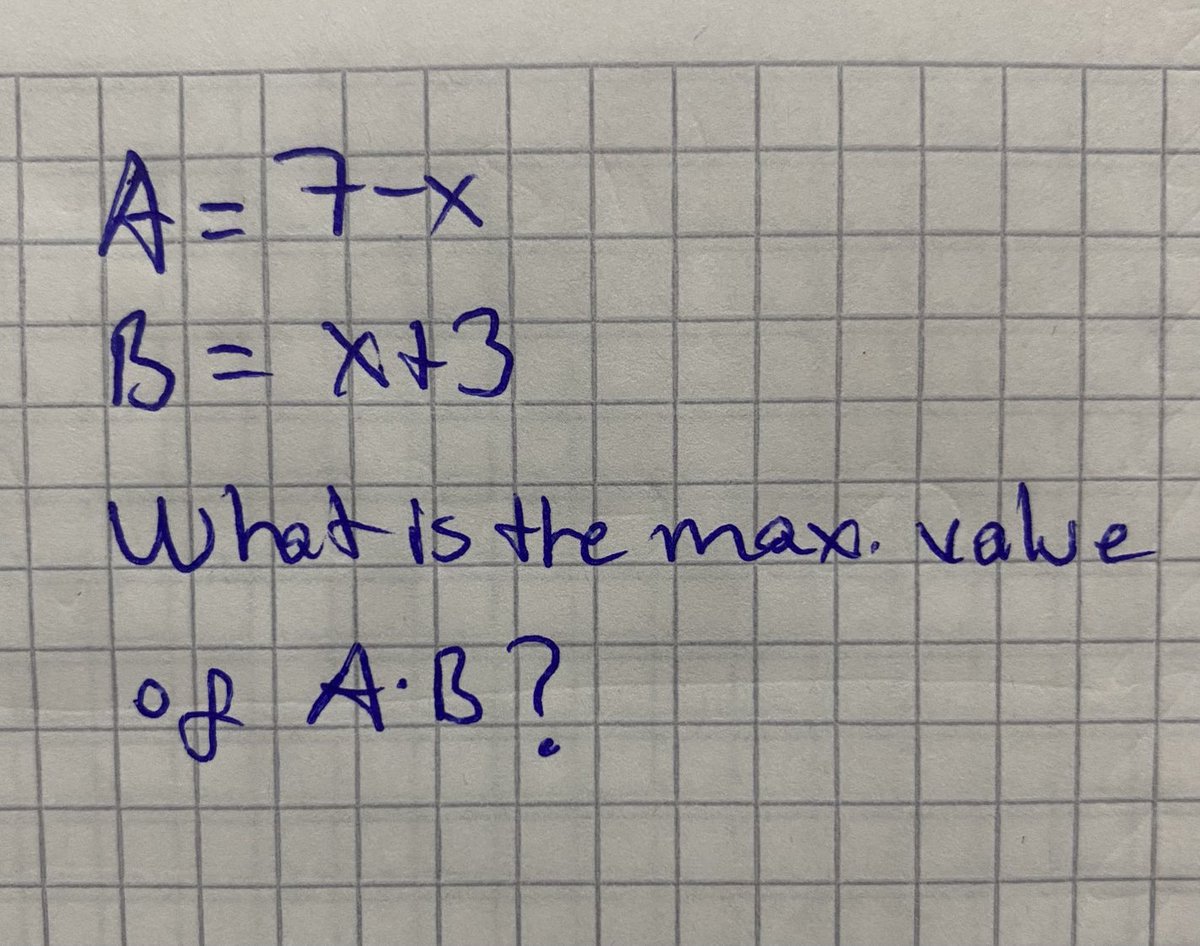 A = 7-x
B = x+3
What is the max. value
of A·B?